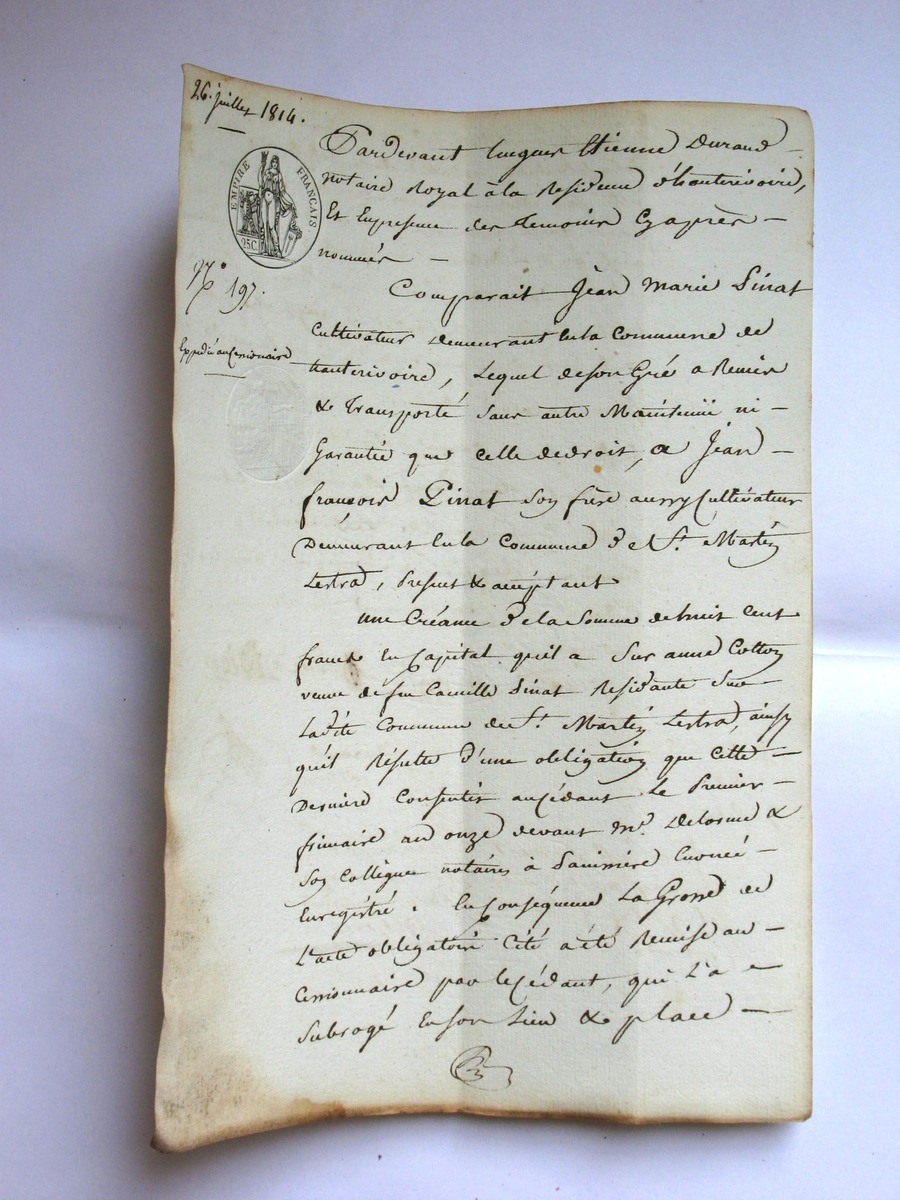 26. juillet 1814.
EMPIRE FRANÇAIS.
25 C.
N.º 197.
Expédié au Cessionaire
Pardevant hugues Etienne Durand
notaire Royal à la Residence d'hauterivoire,
Et En presence des temoins Cyaprès
nommés
Comparait Jean Marie Pinat
Cultivateur demeurant En la Commune de
hauterivoire, Lequel de son Gré a Remis
& transporté sans autre Maintenüe ni
Garantié que celle de droit, a Jean
françois Pinat son frère aussy Cultivateur
Demeurant En la Commune de St. Martin
Lestra, Présent & acceptant
une Créance de la Somme de huit Cent
francs En Capital qu'il a Sur anne Cotton
veuve de feu Camille Pinat Residante Sur
Ladite Commune de St. Martin Lestra, ainsy
qu'il Résulte d'une obligation que Cette
Derniere Consentit au Cédant Le Premier
frimaire an onze devant Me. Delorme &
Son Collègue notaires à Panissière
Enregistré. En Conséquence La Grosse de
L'acte obligatoire Cité a été Remise au
Cessionnaire par le Cédant, qui L'a
Subrogé En son Lieu & place